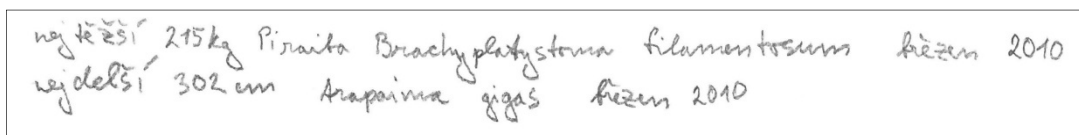 nejtěžší 215kg Piraiba Brachyplatystoma filamentosum březen 2010
nejdelší 302 cm Arapaima gigas březen 2010